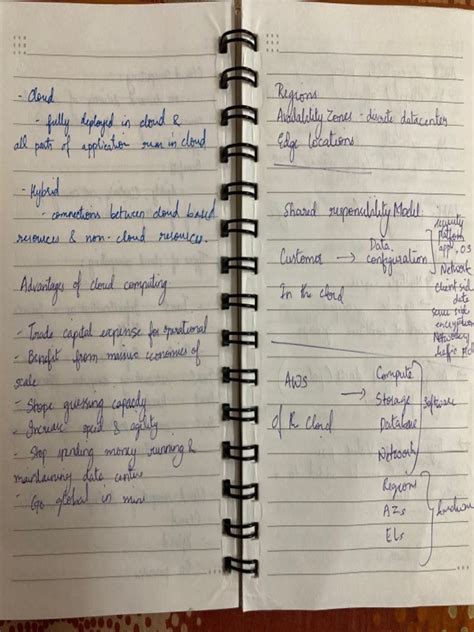 - Cloud
- fully deployed in cloud &
all parts of application run in cloud
- Hybrid
- connections between cloud based
resources & non-cloud resources.
Advantages of cloud computing
- Trade capital expense for operational
- Benefit from massive economies of
scale
- Stope guessing capacity
- Increase speed & agility
- Stop spending money running &
maintaining data centre
- Go global in mins
Regions
Availability Zones - discrete datacenter
Edge locations
Shared responsibility Model
Customer → Data
configuration
security
platform
app, OS
Network
client sid
data
serve side
encryption
In the cloud
AWS → Compute
Storage
Database
Network
Software
Of the Cloud
Regions
AZs
ELs
Hardware